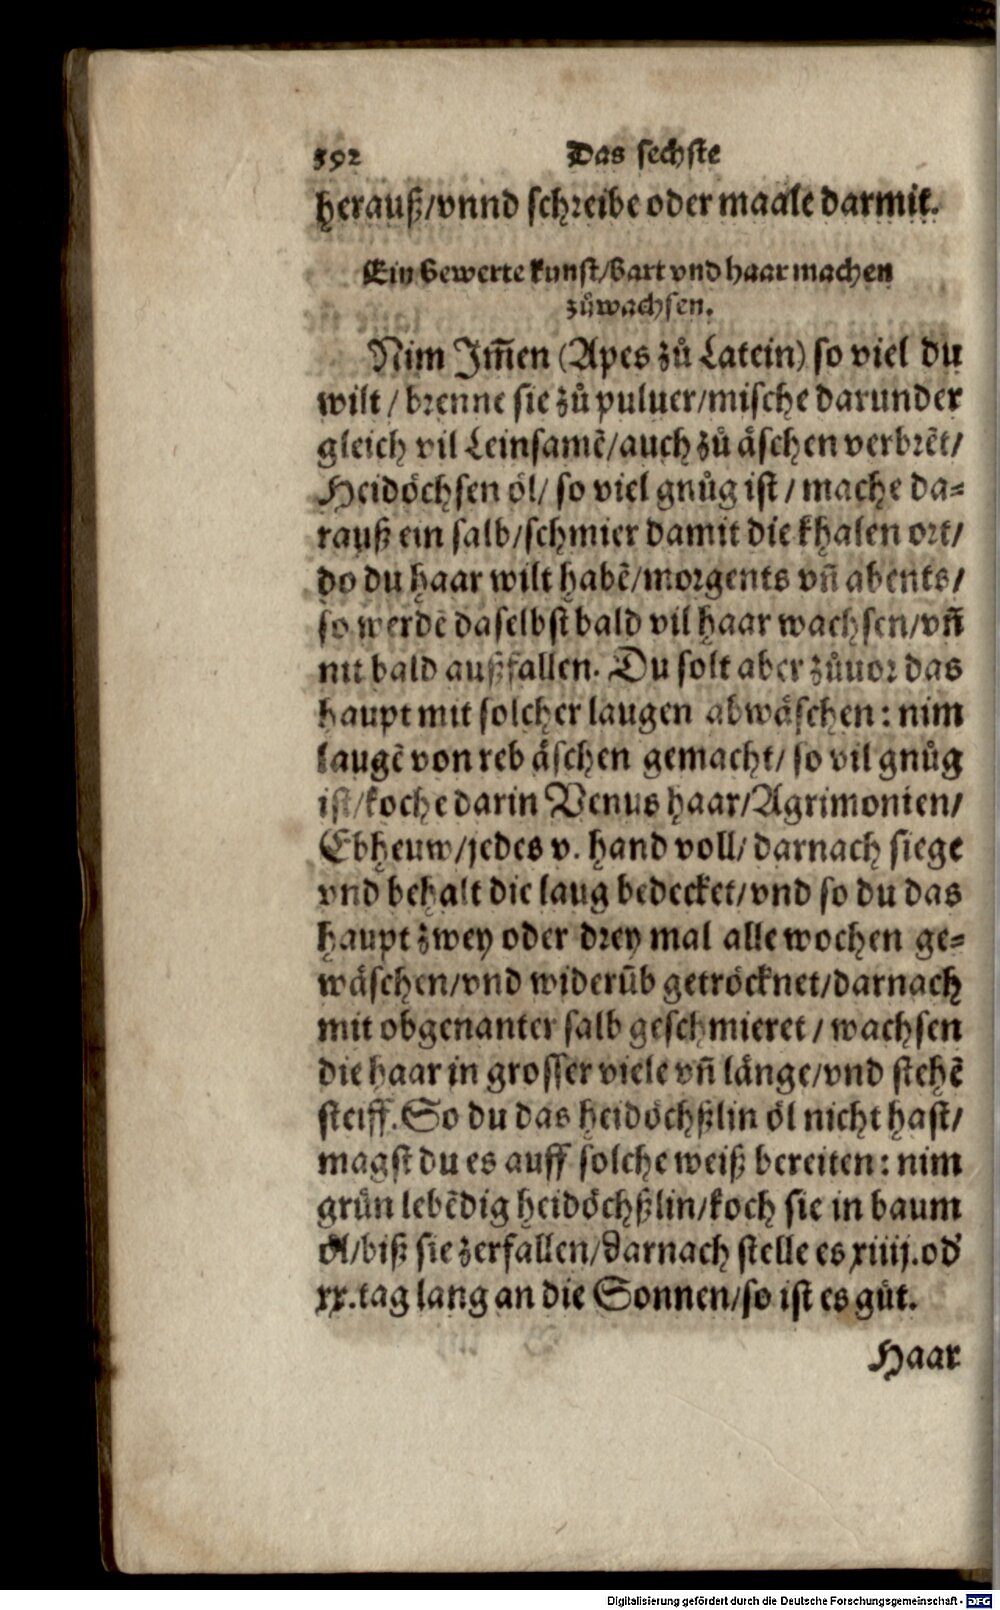 592 Das sechste
herauß/vnnd schreibe oder maale darmit.
Ein bewerte kunst/bart vnd haar machen
zůwachsen.
Nim Im̃en (Apes zů Latein) so viel du
wilt / brenne sie zů puluer/mische darunder
gleich vil Leinsamẽ/auch zů äschen verbrẽt/
Heidöchsen öl/ so viel gnůg ist / mache da⸗
rauß ein salb/schmier damit die khalen ort/
do du haar wilt habẽ/morgents vñ abents/
so werdẽ daselbst bald vil haar wachsen/vñ
nit bald außfallen. Du solt aber zůuor das
haupt mit solcher laugen abwäschen: nim
laugẽ von reb äschen gemacht/ so vil gnůg
ist/koche darin Venus haar/Agrimonien/
Ebheuw/jedes v. hand voll/ darnach siege
vnd behalt die laug bedecket/vnd so du das
haupt zwey oder drey mal alle wochen ge⸗
wäschen/vnd widerũb getröcknet/darnach
mit obgenanter salb geschmieret / wachsen
die haar in grosser viele vñ länge/vnd stehẽ
steiff. So du das heidöchßlin öl nicht hast/
magst du es auff solche weiß bereiten: nim
grůn lebẽdig heidöchßlin/koch sie in baum
öl/biß sie zerfallen/darnach stelle es xiiij. od'
xx. tag lang an die Sonnen/so ist es gůt.
Haar
Digitalisierung gefördert durch die Deutsche Forschungsgemeinschaft - DFG